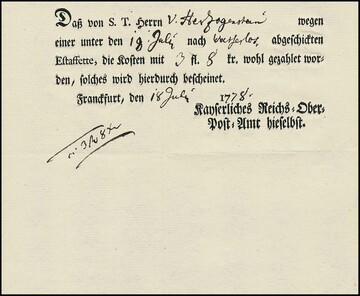 Daß von S. T. Herrn V. Herzogenstein wegen
einer unter den 19 July nach abgeschickten
Estaffette, die Kosten mit 3 fl. 8 kr. wohl gezahlt wor-
den, solches wird hierdurch bescheinet.
Franckfurt, den 18 July 1778.
Kayserliches Reichs-Ober-
Post-Amt hieselbst.